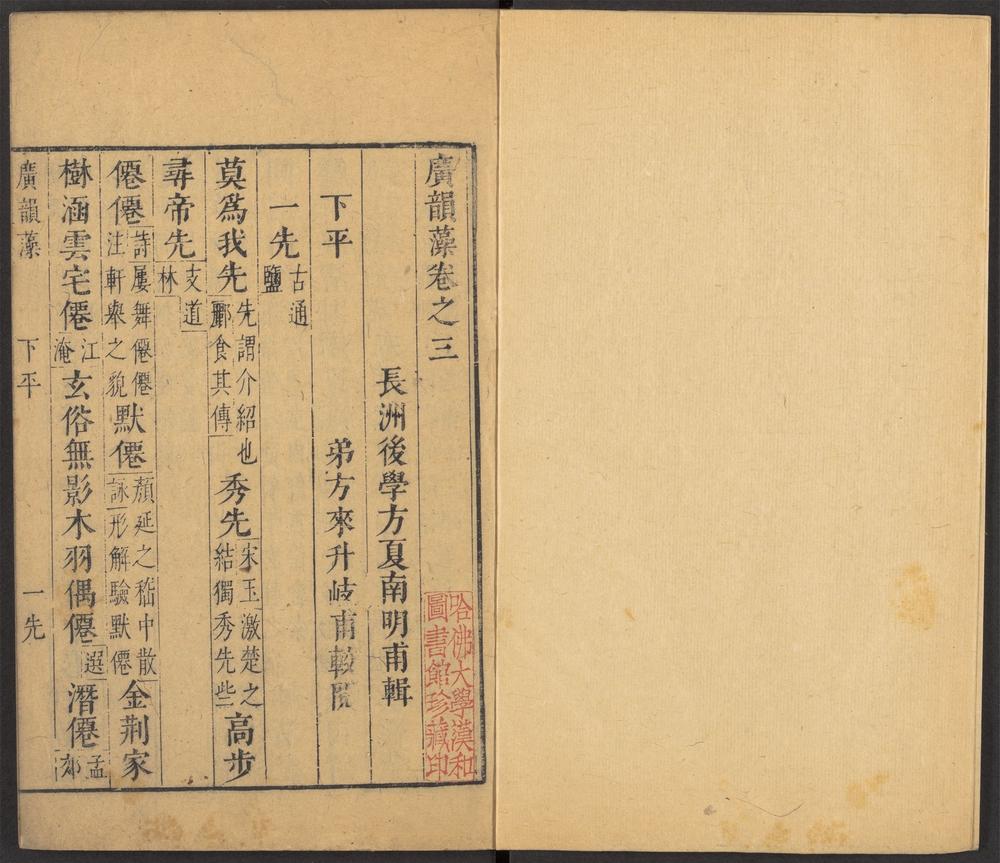 廣韻藻卷之三
長洲後學方夏南明甫輯
弟方來升岐甫較閱
下平
一先古通鹽
莫爲我先先謂介紹也酈食其傳秀先宋玉激楚之結獨秀先些高步
尋帝先支道林
僊僊詩屢舞僊僊注軒舉之貌默僊顏延之嵇中散詠形解驗默僊金荆家
樹涵雲宅僊江淹玄俗無影木羽偶僊選潛僊孟郊
廣韻藻 下平 一先
哈佛大學漢和
圖書館珍藏印